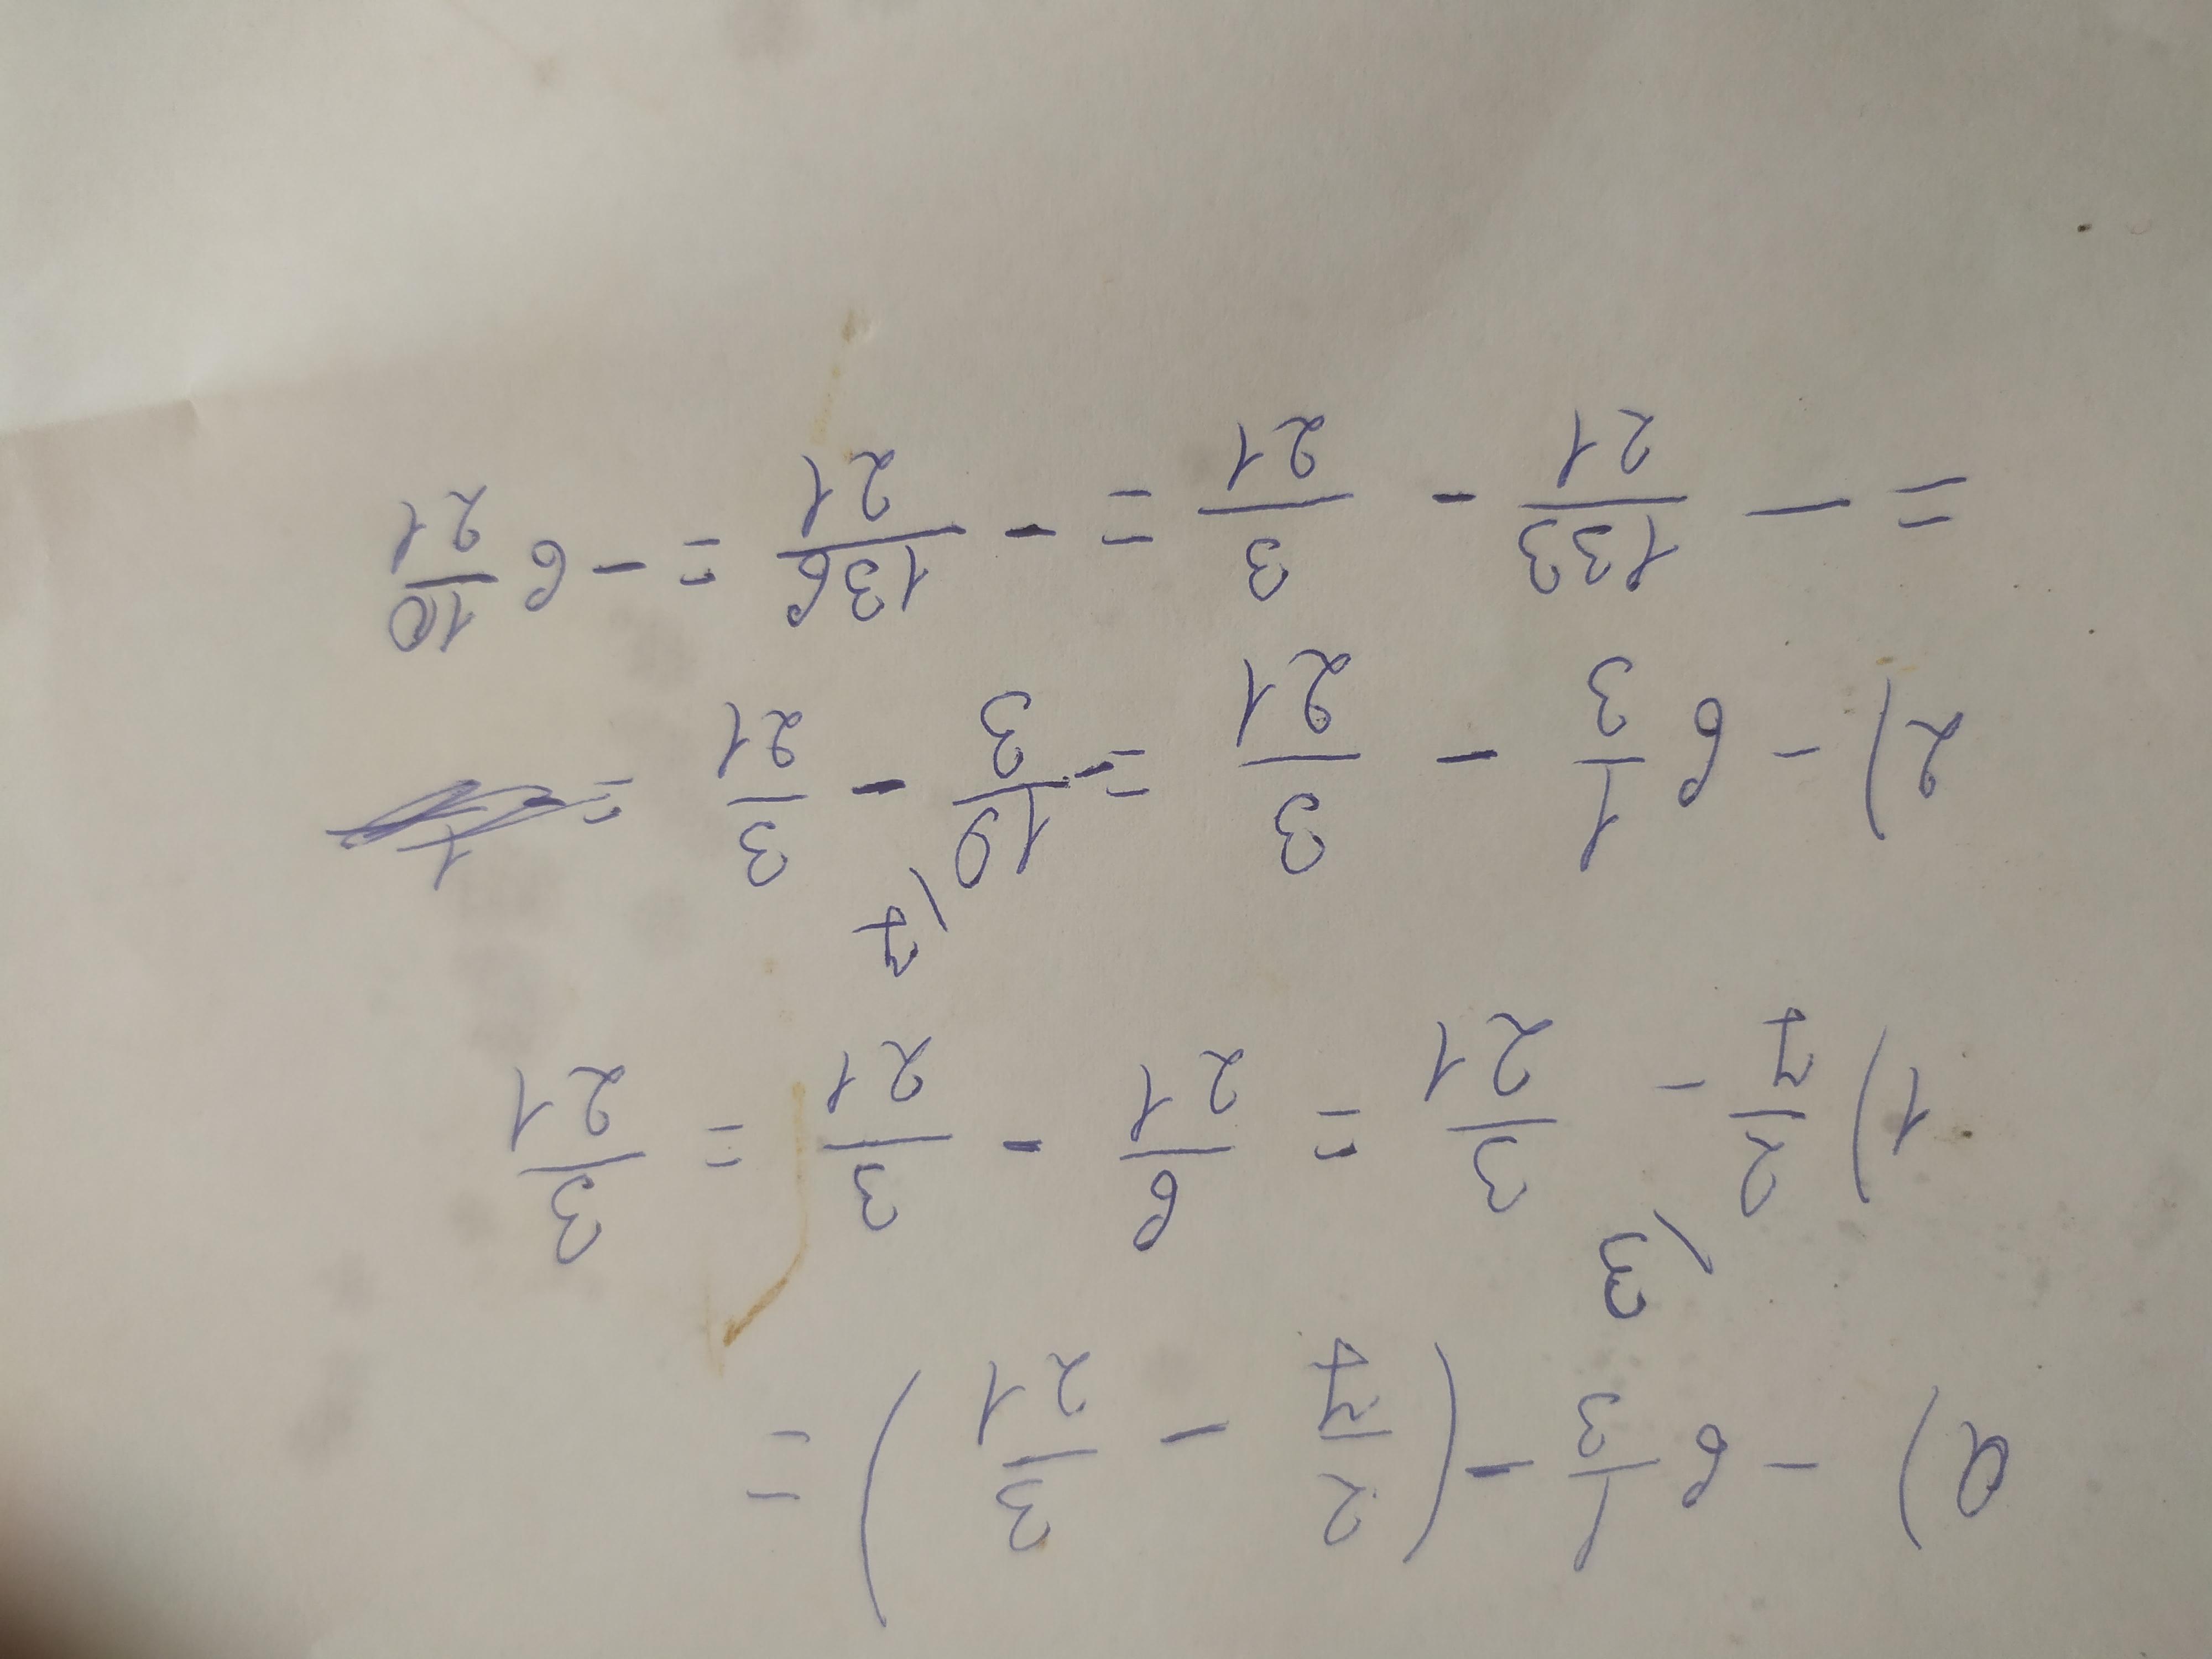 a) - 6 1/3 - (2/7 - 3/21) =
1) 2/7 (3 - 3/21 = 6/21 - 3/21 = 3/21
2) - 6 1/3 - 3/21 = - 19/3 (7 - 3/21 =
= - 133/21 - 3/21 = - 136/21 = - 6 10/21